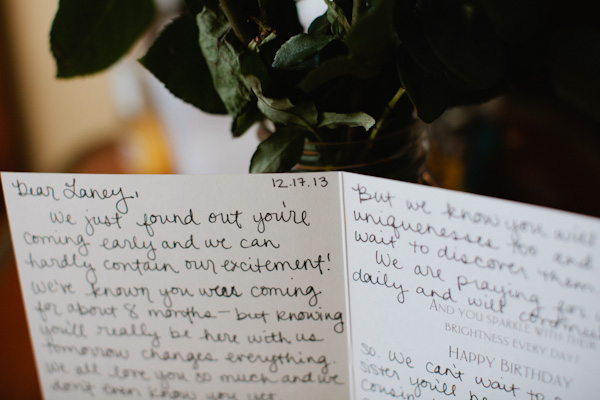 12.17.13
Dear Laney,
We just found out you're
coming early and we can
hardly contain our excitement!
We've known you were coming
for about 8 months — but knowing
you'll really be here with us
tomorrow changes everything.
We all love you so much and we
don't even know you yet
But we know you will
uniquenesses too and
wait to discover them
We are praying for
daily and will continue
AND YOU SPARKLE WITH THEIR
BRIGHTNESS EVERY DAY!
HAPPY BIRTHDAY
So. We can't wait to
sister you'll be
cousin